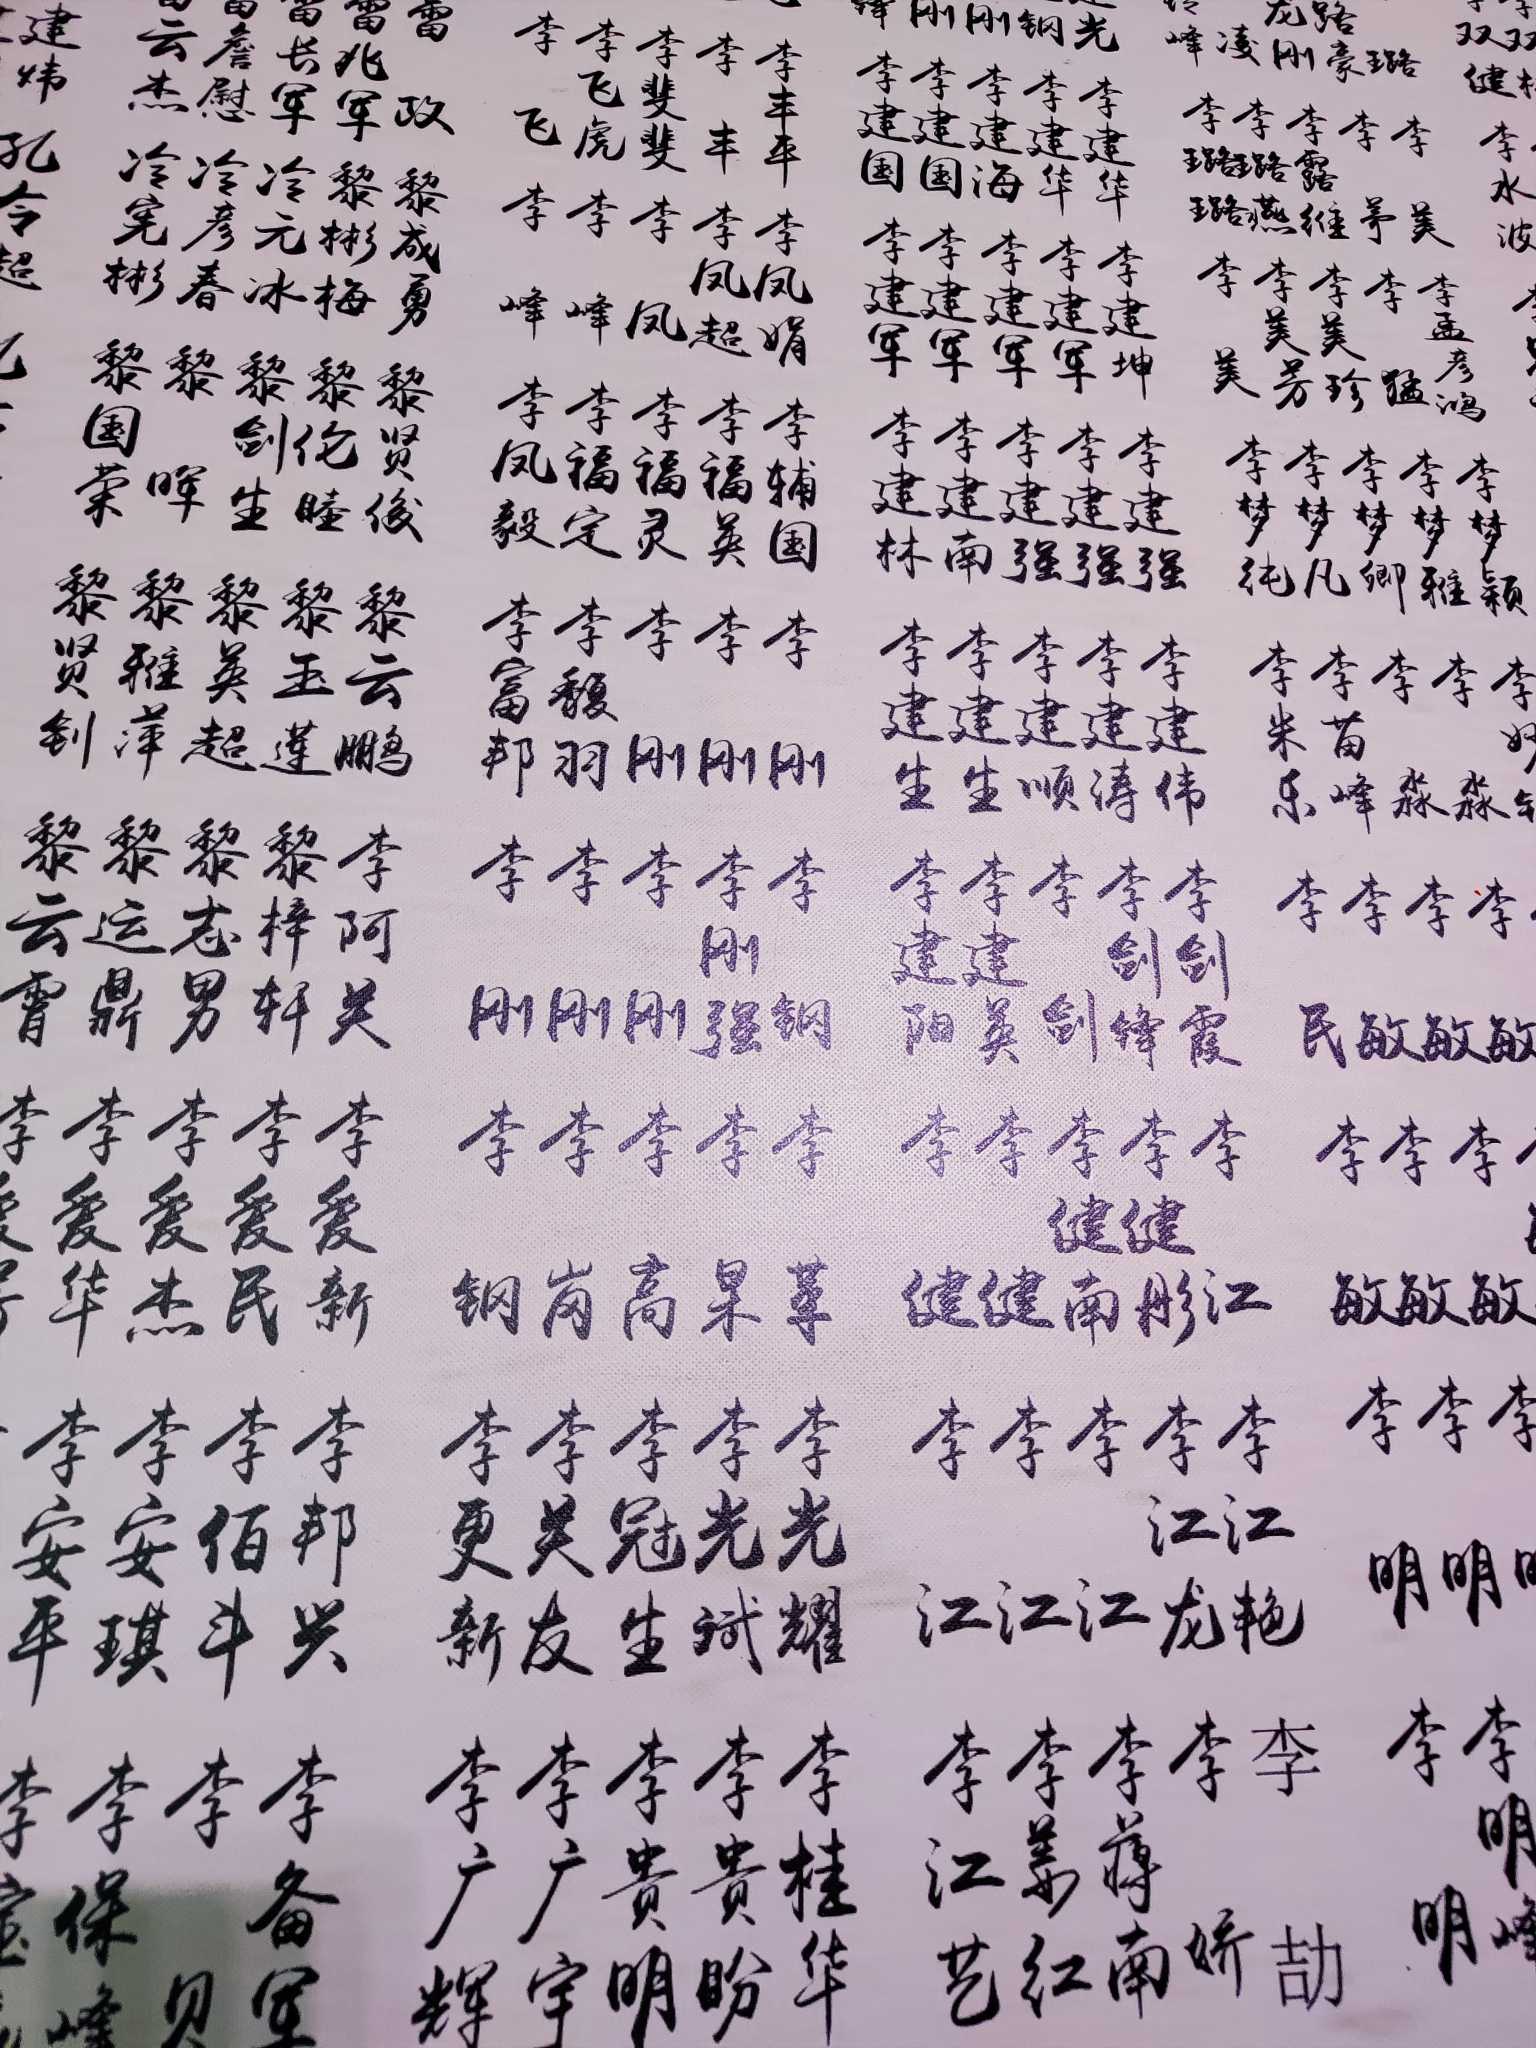 建炜
孔令超
云杰
雷詹慰
雷长军
雷兆军
雷政
冷宪彬
冷彦春
冷元冰
黎彬梅
黎成勇
黎国荣
黎晖
黎剑生
黎伦睦
黎贤俊
黎贤钊
黎雅萍
黎英超
黎玉莲
黎云鹏
黎云霄
黎运鼎
黎志男
黎梓轩
李阿关
李爱
李爱华
李爱杰
李爱民
李爱新
李安平
李安琪
李佰斗
李邦兴
李
李保峰
李贝
李备军
李飞
李飞虎
李斐斐
李丰
李丰平
李峰
李峰
李凤
李凤超
李凤娟
李凤毅
李福定
李福灵
李福英
李辅国
李富邦
李馥羽
李刚
李刚
李刚
李刚
李刚
李刚
李刚强
李钢
李钢
李岗
李高
李杲
李革
李更新
李关友
李冠生
李光斌
李光耀
李广辉
李广宇
李贵明
李贵盼
李桂华
锋
刚
刚
钢
建光
李建国
李建国
李建海
李建华
李建华
李建军
李建军
李建军
李建军
李建坤
李建林
李建南
李建强
李建强
李建强
李建生
李建生
李建顺
李建涛
李建伟
李建阳
李建英
李剑
李剑锋
李剑霞
李健
李健
李健南
李健彤
李江
李江
李江
李江
李江龙
李江艳
李江艺
李红
李南
李娇
李劼
峰
凌
龙刚
路豪
璐
李璐璐
李璐燕
李露维
李茅
李美
李美
李美芳
李美珍
李猛
李孟彦鸿
李梦纯
李梦凡
李梦卿
李梦雅
李梦颖
李米乐
李苗峰
李淼
李淼
李民
李敏
李敏
李敏
李敏
李敏
李敏
李明
李明
李明
李明峰
双健
李水波